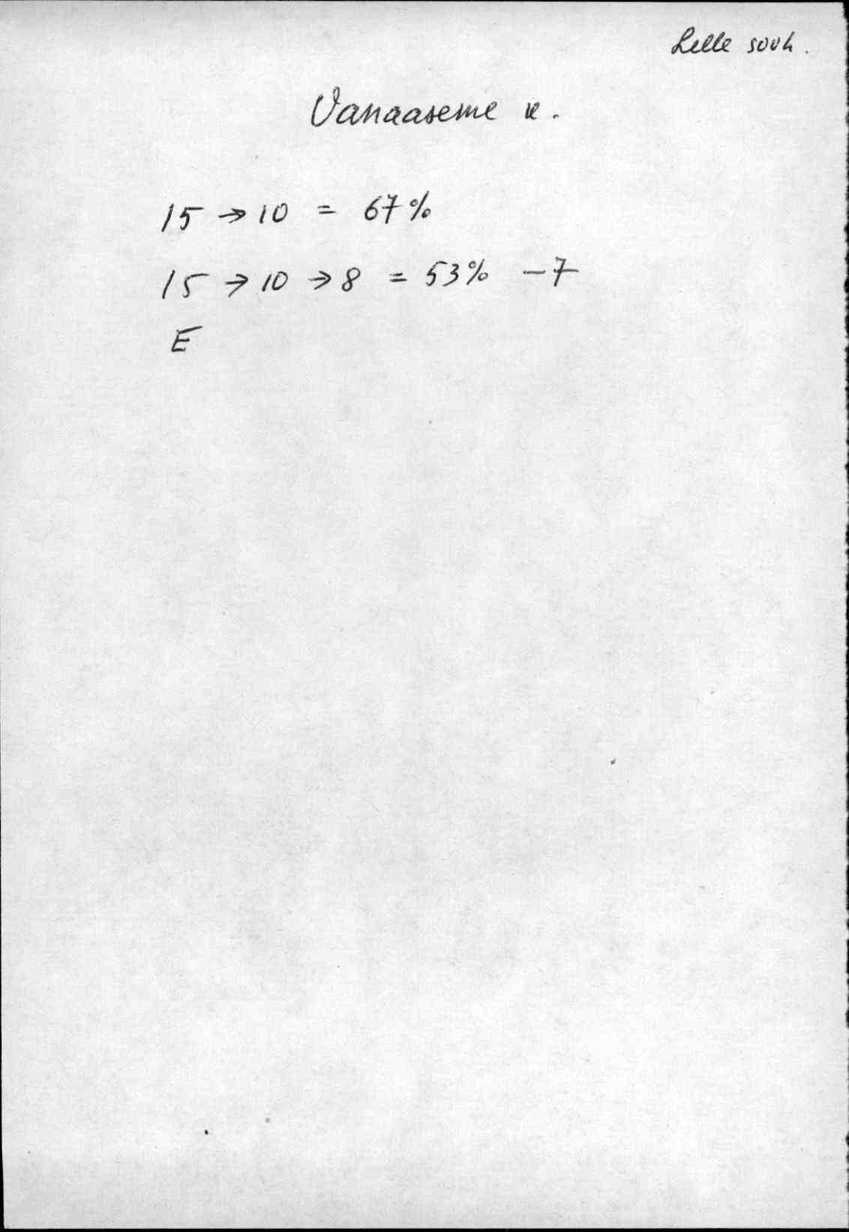 Lelle sovh.
Vanaaseme k.
15 → 10 = 67%
15 → 10 → 8 = 53% -7
E